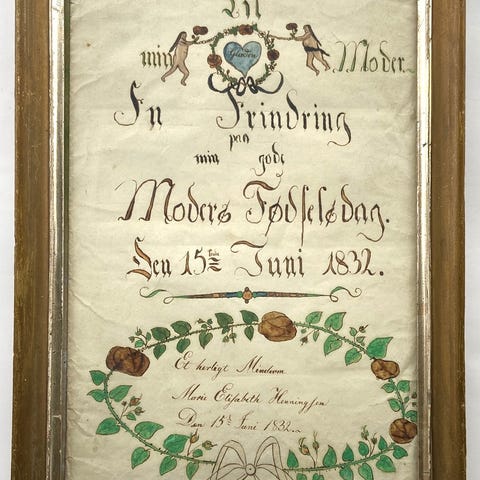 Til
Glæden
min Moder.
En Erindring
paa
min gode
Moders Fødselsdag.
Den 15de Juni 1832.
Et herligt Mindom
Marie Elisabeth Henningsen
Den 15de Juni 1832.